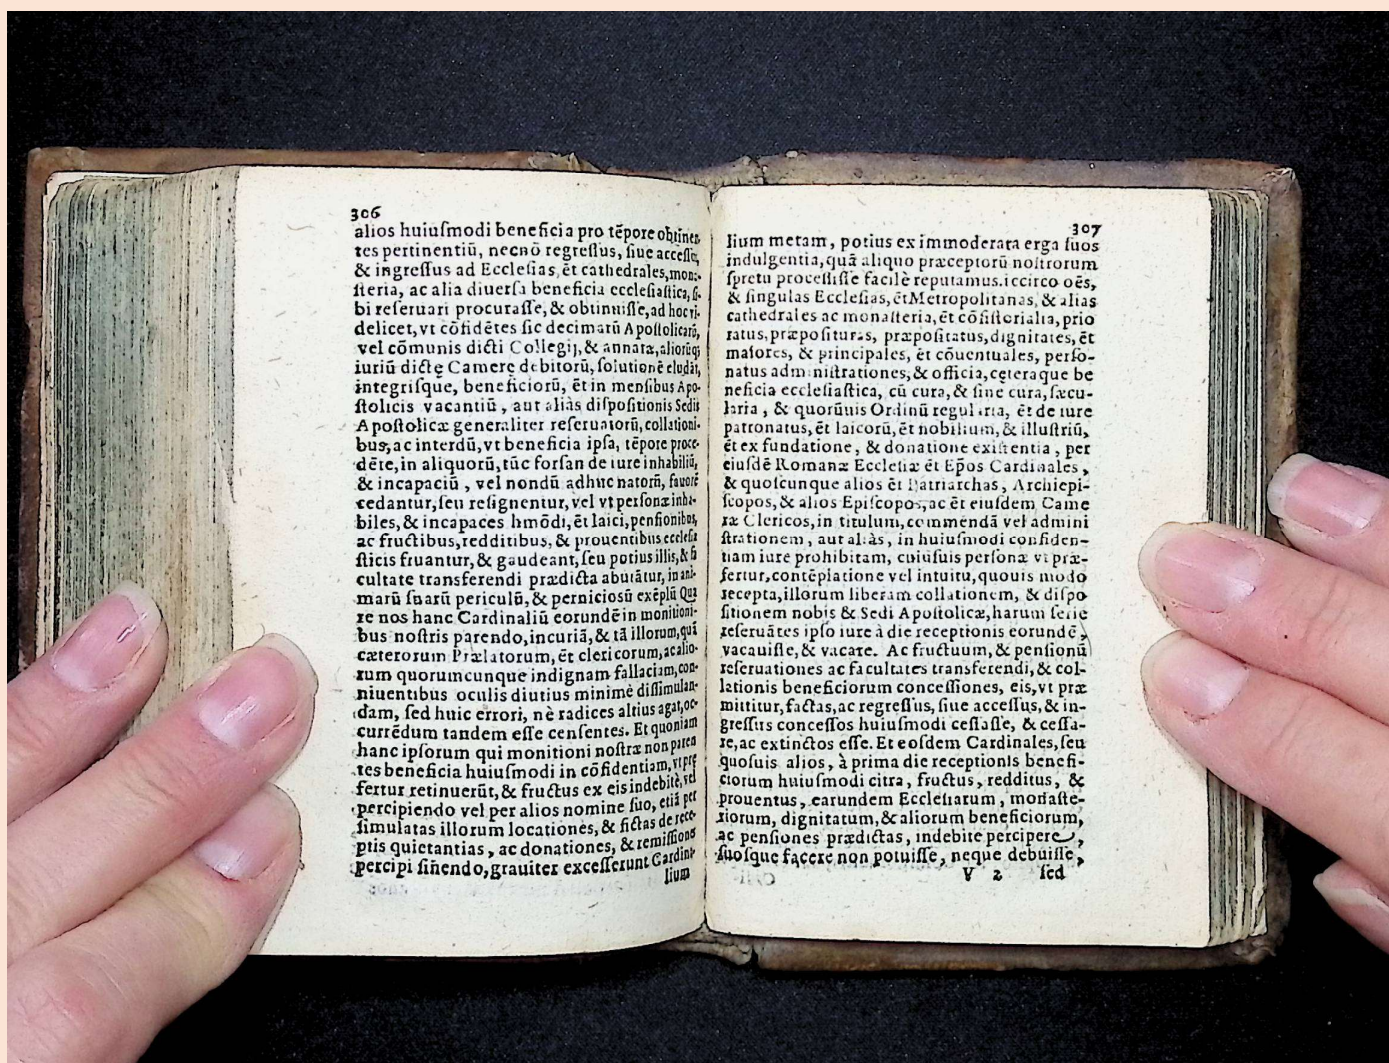 306
alios huiuſmodi beneficia pro tēpore obtinen-
tes pertinentiū, necnō regreſſus, ſiue acceſſus,
& ingreſſus ad Eccleſias, ēt cathedrales, mona-
ſteria, ac alia diuerſa beneficia eccleſiaſtica, ſi-
bi reſeruari procuraſſe, & obtinuiſſe, ad hoc vi-
delicet, vt cōfidētes ſic decimarū Apoſtolicarū,
vel cōmunis dicti Collegij, & annatæ, aliorūq;
iuriū dictę Camerę debitorū, ſolutionē eludāt,
integriſque, beneficiorū, ēt in menſibus Apo-
ſtolicis vacantiū, aut aliàs diſpoſitionis Sedis
Apoſtolicæ generaliter reſeruatorū, collationi-
bus, ac interdū, vt beneficia ipſa, tēpore proce-
dēte, in aliquorū, tūc forſan de iure inhabiliū,
& incapaciū, vel nondū adhuc natorū, fauorē
cedantur, ſeu reſignentur, vel vt perſonæ inha-
biles, & incapaces hmōdi, ēt laici, penſionibus,
ac fructibus, redditibus, & prouentibus eccleſia
ſticis fruantur, & gaudeant, ſeu potius illis, & fa
cultate transferendi prædicta abutātur, in ani-
marū ſuarū periculū, & pernicioſū exēplū Qua
re nos hanc Cardinaliū eorundē in monitioni-
bus noſtris parendo, incuriā, & tā illorum, quā
cæterorum Prælatorum, ēt clericorum, ac alio-
rum quorumcunque indignam fallaciam, con-
niuentibus oculis diutius minimè diſſimulan-
dam, ſed huic errori, nè radices altius agat, oc-
currēdum tandem eſſe cenſentes. Et quoniam
hanc ipſorum qui monitioni noſtræ non paren
tes beneficia huiuſmodi in cōfidentiam, vt præ
fertur retinuerūt, & fructus ex eis indebitè, vel
percipiendo vel per alios nomine ſuo, etiā per
ſimulatas illorum locationes, & fictas de rece-
ptis quietantias, ac donationes, & remiſſiones
percipi ſinendo, grauiter exceſſerunt Cardina
lium
307
lium metam, potius ex immoderata erga ſuos
indulgentia, quā aliquo præceptorū noſtrorum
ſpretu proceſſiſſe facilè reputamus. iccirco oēs,
& ſingulas Eccleſias, ēt Metropolitanas, & alias
cathedrales ac monaſteria, ēt cōſiſtorialia, prio
ratus, præpoſituras, præpoſitatus, dignitates, ēt
maiores, & principales, ēt cōuentuales, perſo-
natus adminiſtrationes, & officia, cęteraque be
neficia eccleſiaſtica, cū cura, & ſine cura, ſæcu-
laria, & quorūuis Ordinū regularia, ēt de iure
patronatus, ēt laicorū, ēt nobilium, & illuſtriū,
ēt ex fundatione, & donatione exiſtentia, per
eiuſdē Romanæ Eccleſiæ ēt Ep̄os Cardinales,
& quoſcunque alios ēt Patriarchas, Archiepi-
ſcopos, & alios Epiſcopos, ac ēt eiuſdem Came
ræ Clericos, in titulum, commendā vel admini
ſtrationem, aut aliàs, in huiuſmodi confiden-
tiam iure prohibitam, cuiuſuis perſonæ vt præ-
fertur, contēplatione vel intuitu, quouis modo
recepta, illorum liberam collationem, & diſpo
ſitionem nobis & Sedi Apoſtolicæ, harum ſerie
reſeruātes ipſo iure à die receptionis eorundē,
vacauiſſe, & vacare. Ac fructuum, & penſionū
reſeruationes ac facultates transferendi, & col-
lationis beneficiorum conceſſiones, eis, vt præ
mittitur, factas, ac regreſſus, ſiue acceſſus, & in-
greſſus conceſſos huiuſmodi ceſſaſſe, & ceſſa-
re, ac extinctos eſſe. Et eoſdem Cardinales, ſeu
quoſuis alios, à prima die receptionis benefi-
ciorum huiuſmodi citra, fructus, redditus, &
prouentus, earundem Eccleſiarum, monaſte-
riorum, dignitatum, & aliorum beneficiorum,
ac penſiones prædictas, indebite percipere,
ſuoſque facere non potuiſſe, neque debuiſſe,
V 2 ſed